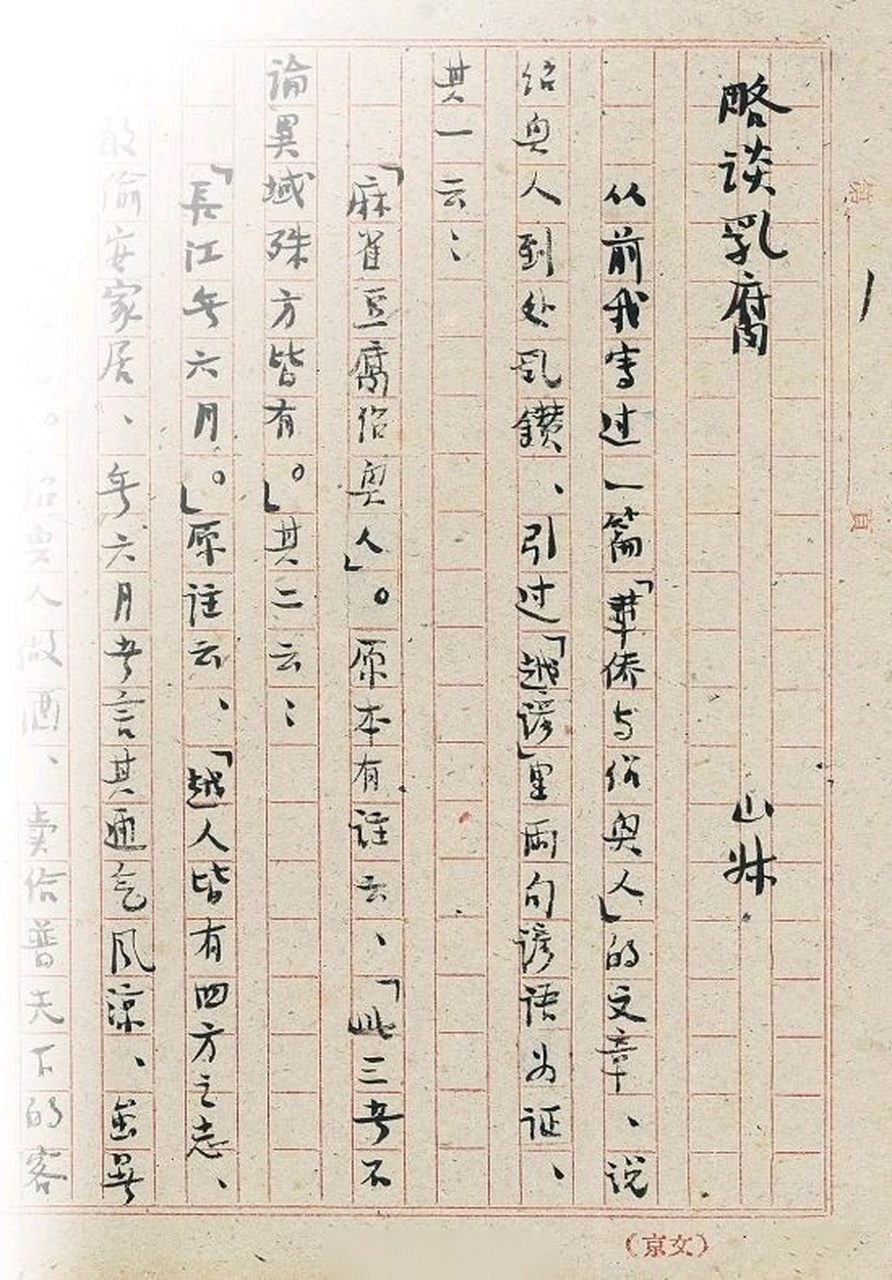 第1頁
略谈乳腐
山
从前我写过一篇「華侨与绍興人」的文章、说
绍興人到处乱鑽、引过「越谚」里両句谚语为证、
其一云：
「麻雀豆腐绍興人」。原本有註云、「此三者不
論異域殊方皆有。」其二云：
「長江無六月。」原註云、「越人皆有四方之志、
敢偷安家居、無六月者言其通气风凉、虽暑
。绍興人做酒、卖给普天下的客
（京文）